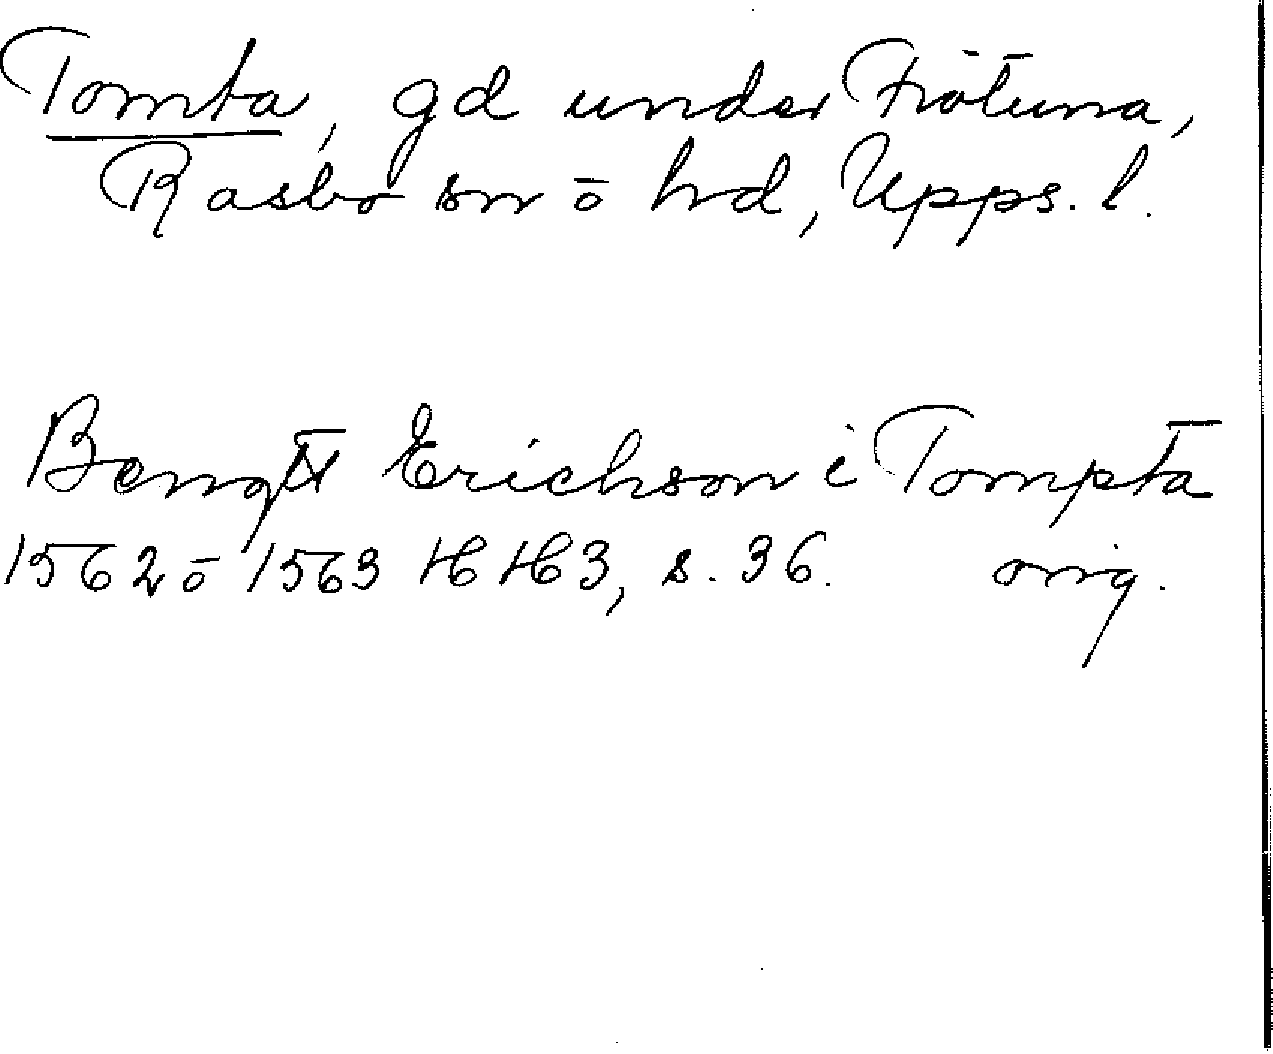 Tomta, gd under Frötuna,
Rasbo sn o hd, Upps. l.
Bengt Erichson i Tompta
1562 o 1563 HH3, s. 36. orig.